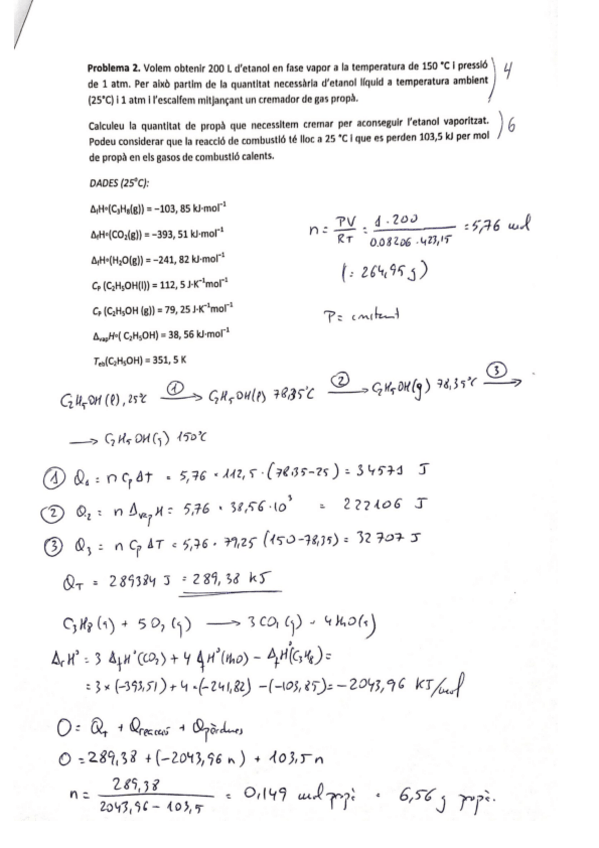 Problema 2. Volem obtenir 200 L d'etanol en fase vapor a la temperatura de 150 °C i pressió
de 1 atm. Per això partim de la quantitat necessària d'etanol líquid a temperatura ambient
(25°C) i 1 atm i l'escalfem mitjançant un cremador de gas propà.
4
Calculeu la quantitat de propà que necessitem cremar per aconseguir l'etanol vaporitzat.
Podeu considerar que la reacció de combustió té lloc a 25 °C i que es perden 103,5 kJ per mol
de propà en els gasos de combustió calents.
6
DADES (25°C):
ΔfH°(C3H8(g)) = –103, 85 kJ·mol⁻¹
ΔfH°(CO2(g)) = –393, 51 kJ·mol⁻¹
ΔfH°(H2O(g)) = –241, 82 kJ·mol⁻¹
CP (C2H5OH(l)) = 112, 5 J·K⁻¹mol⁻¹
CP (C2H5OH (g)) = 79, 25 J·K⁻¹mol⁻¹
ΔvapH°( C2H5OH) = 38, 56 kJ·mol⁻¹
Teb(C2H5OH) = 351, 5 K
n = PV/RT = 1·200/0.08206·423,15 = 5,76 mol
(= 264,95 g)
P = constant
C2H5OH (l), 25°C ① → C2H5OH (l) 78,35°C ② → C2H5OH (g) 78,35°C ③ →
→ C2H5OH (g) 150°C
① Q1 = n Cp ΔT = 5,76 · 112,5 · (78,35-25) = 34571 J
② Q2 = n ΔvapH = 5,76 · 38,56·10³ = 222106 J
③ Q3 = n Cp ΔT = 5,76 · 79,25 (150-78,35) = 32707 J
QT = 289384 J = 289,38 kJ
C3H8 (g) + 5O2 (g) → 3CO2 (g) + 4H2O (g)
ΔrH° = 3 ΔfH°(CO2) + 4 ΔfH°(H2O) – ΔfH°(C3H8) =
= 3 × (-393,51) + 4·(-241,82) -(-103,85) = -2043,96 KJ/mol
0 = QT + Qreacció + Qpèrdues
0 = 289,38 + (-2043,96 n) + 103,5 n
n = 289,38/2043,96 - 103,5 = 0,149 mol propà = 6,56 g propà.